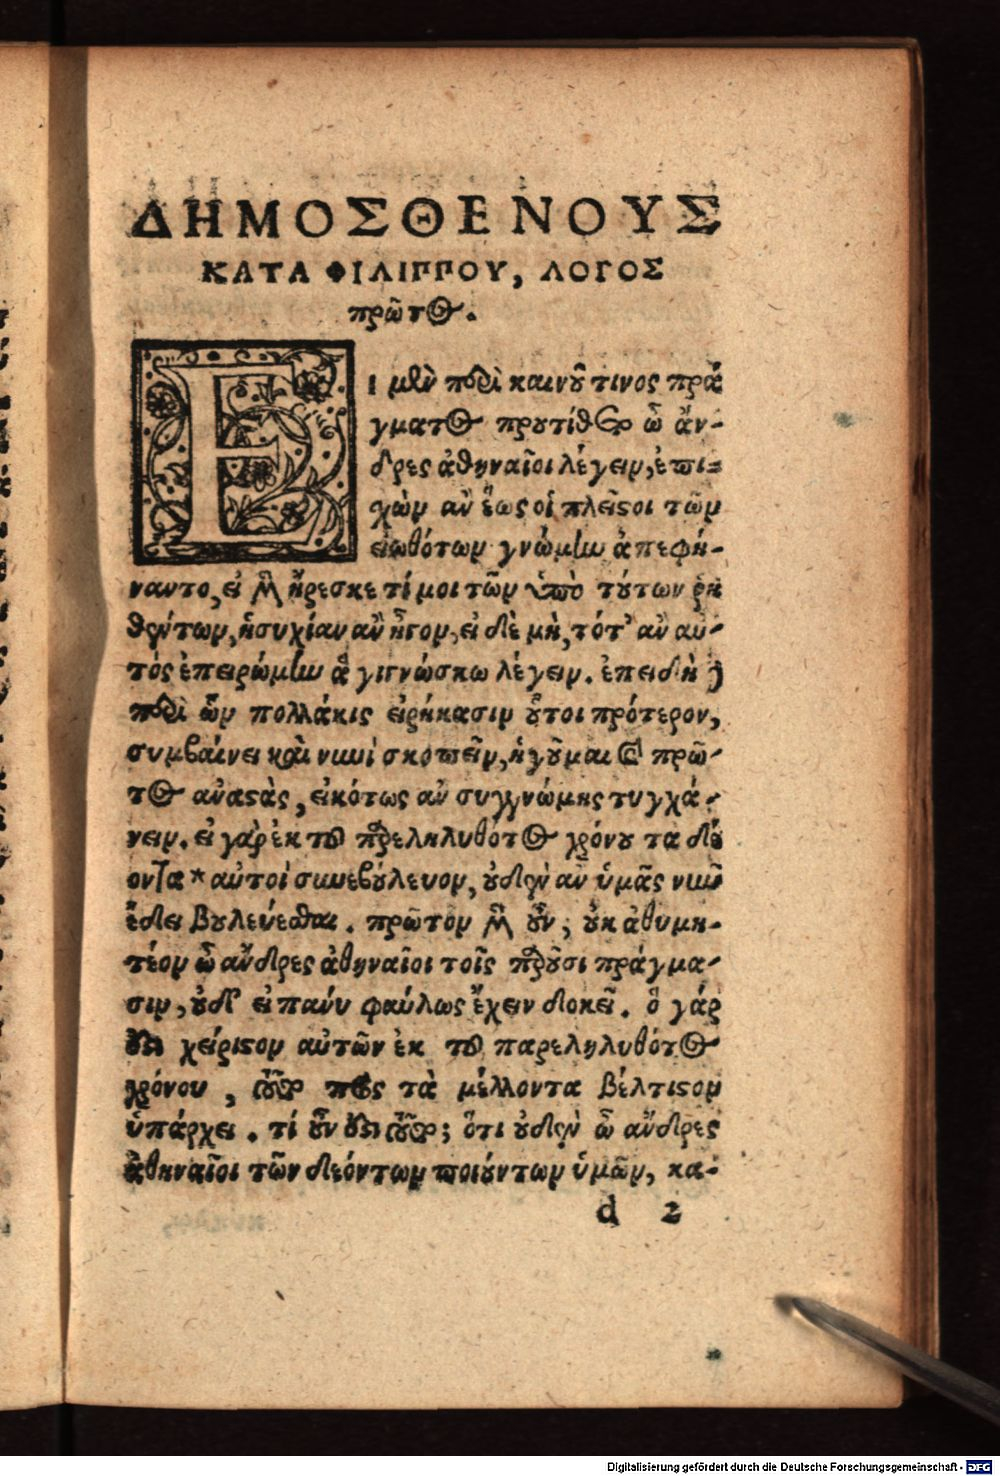 ΔΗΜΟΣΘΕΝΟΥΣ
ΚΑΤΑ ΦΙΛΙΠΠΟΥ, ΛΟΓΟΣ
πρῶτος.
ΕΙ μὲν περὶ καινοῦ τινος πρά
γματος προυτίθετο ὦ ἄν-
δρες ἀθηναῖοι λέγειν, ἐπι-
χὼν ἂν ἕως οἱ πλεῖστοι τῶν
εἰωθότων γνώμην ἀπεφή-
ναντο, εἰ μὲν ἤρεσκε τί μοι τῶν ὑπὸ τούτων ῥη
θέντων, ἡσυχίαν ἂν ἦγον, εἰ δὲ μὴ, τότ' ἂν αὐ-
τὸς ἐπειρώμην ἃ γιγνώσκω λέγειν. ἐπειδὴ δὲ
περὶ ὧν πολλάκις εἰρήκασιν οὗτοι πρότερον,
συμβαίνει καὶ νυνὶ σκοπεῖν, ἡγοῦμαι καὶ πρῶ-
τος ἀναστὰς, εἰκότως ἂν συγγνώμης τυγχά-
νειν. εἰ γὰρ ἐκ τοῦ παρεληλυθότος χρόνου τα δέ
οντα * αὐτοὶ συνεβούλευον, οὐδὲν ἂν ὑμᾶς νῦν
ἔδει βουλεύεσθαι. πρῶτον μὲν οὖν; οὐκ ἀθυμη-
τέον ὦ ἄνδρες ἀθηναῖοι τοῖς παροῦσι πράγμα-
σιν, οὐδ' εἰ πάνυ φαύλως ἔχειν δοκεῖ. ὃ γάρ
ἐστι χείριστον αὐτῶν ἐκ τοῦ παρεληλυθότος
χρόνου, τοῦτο πρὸς τὰ μέλλοντα βέλτιστον
ὑπάρχει. τί οὖν ἐστι τοῦτο; ὅτι οὐδὲν ὦ ἄνδρες
ἀθηναῖοι τῶν δεόντων ποιούντων ὑμῶν, κα-
d 2
Digitalisierung gefördert durch die Deutsche Forschungsgemeinschaft - DFG